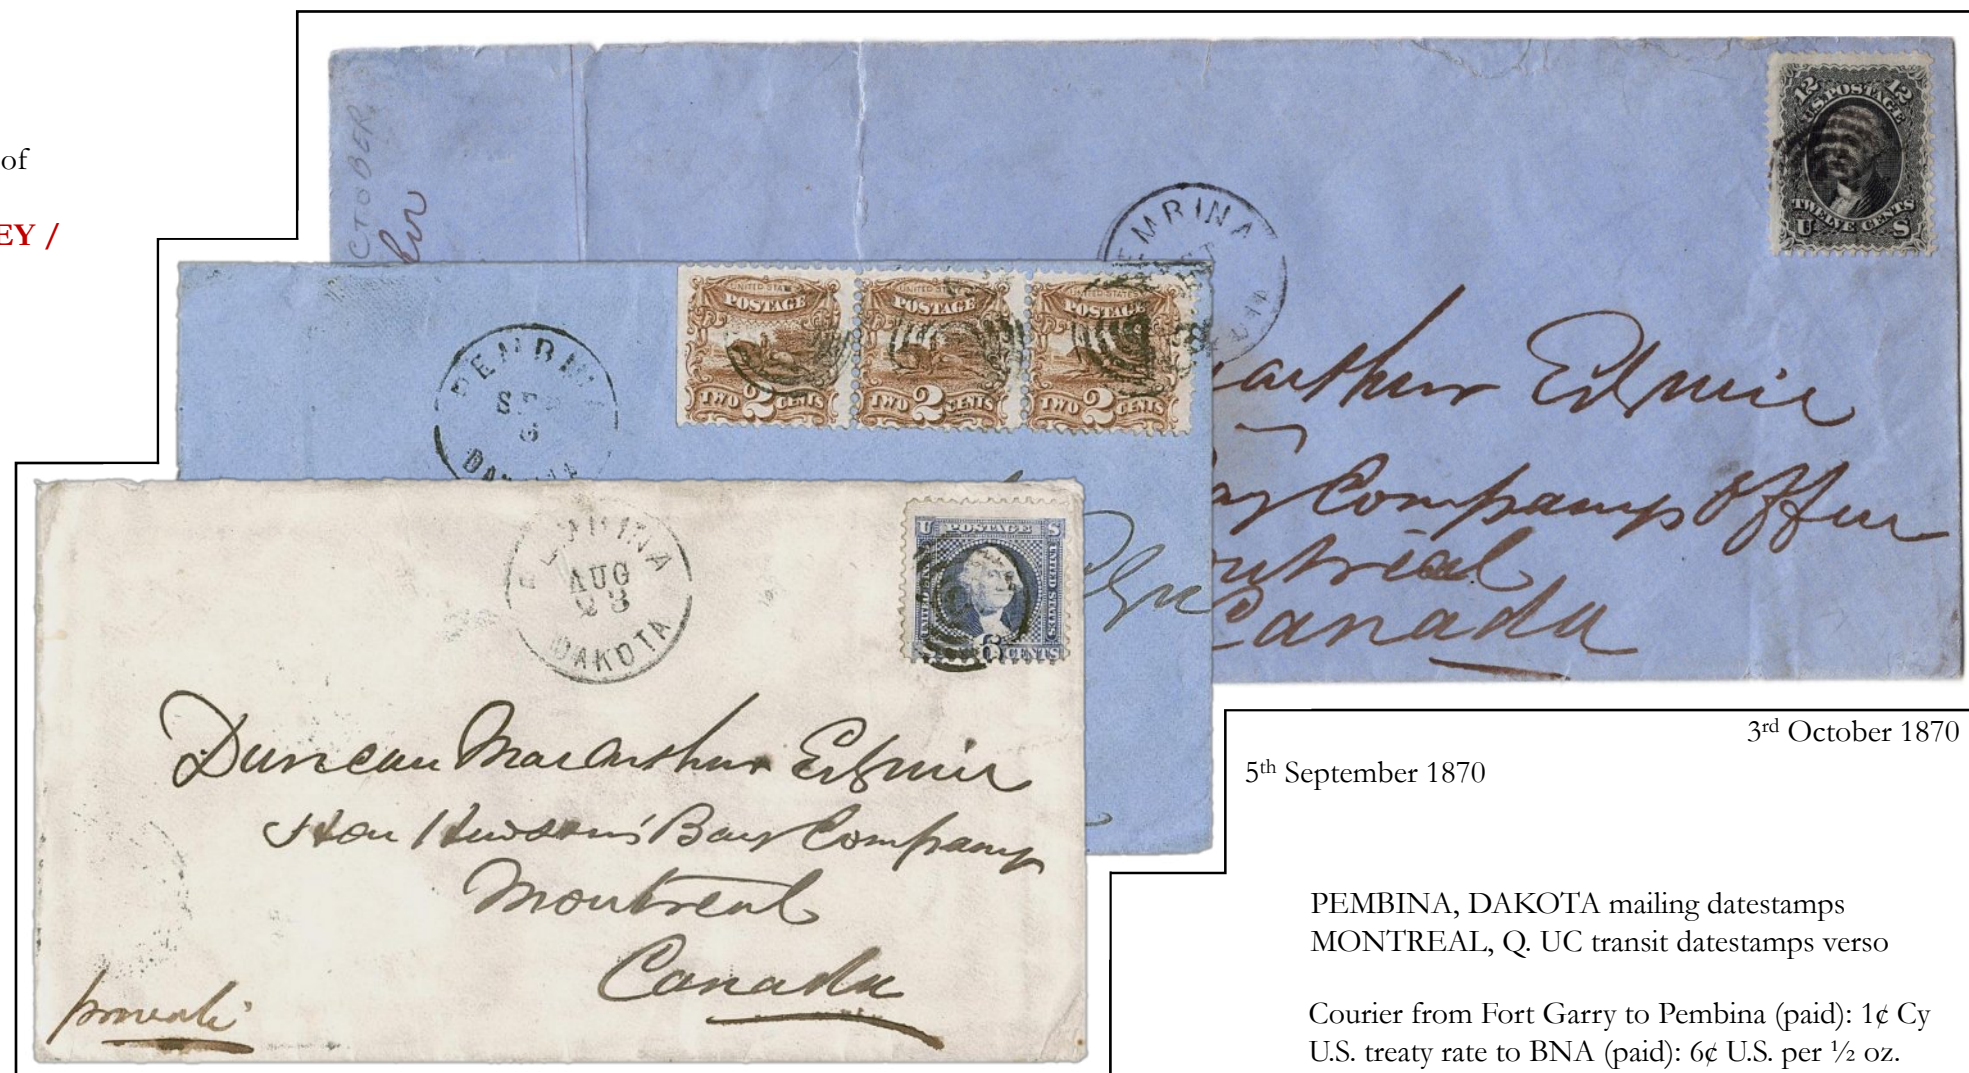 of
EY /
CTOBER
12 12
U.S. POSTAGE
TWELVE CENTS
U S
PEMBINA
arthur Esquire
ay Companys Office
ntreal
Canada
UNITED STATES
POSTAGE
TWO 2 CENTS
UNITED STATES
POSTAGE
TWO 2 CENTS
UNITED STATES
POSTAGE
TWO 2 CENTS
PEMBINA
SEP
DAKOTA
PEMBINA
AUG
23
DAKOTA
U POSTAGE S
UNITED STATES
6 CENTS
Duncan MacArthur Esquire
Hon Hudson's Bay Company
Montreal
Canada
private
3rd October 1870
5th September 1870
PEMBINA, DAKOTA mailing datestamps
MONTREAL, Q. UC transit datestamps verso
Courier from Fort Garry to Pembina (paid): 1¢ Cy
U.S. treaty rate to BNA (paid): 6¢ U.S. per ½ oz.